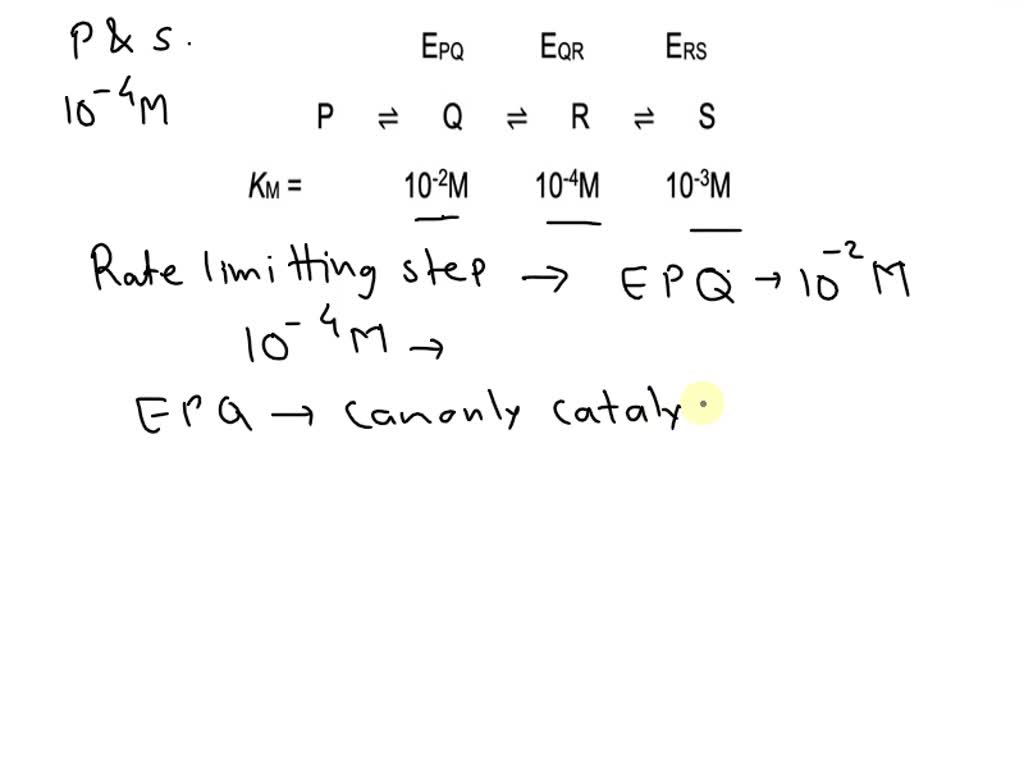 P & S.
10⁻⁴M
EPQ EQR ERS
P ⇌ Q ⇌ R ⇌ S
KM = 10⁻²M 10⁻⁴M 10⁻³M
Rate limitting step → EPQ → 10⁻² M
10⁻⁴ M →
EPQ → Canonly cataly